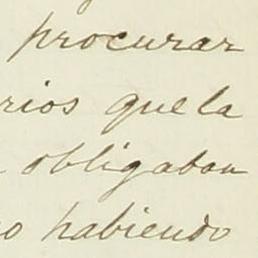 procurar
rios que la
obligaban
o habiendo